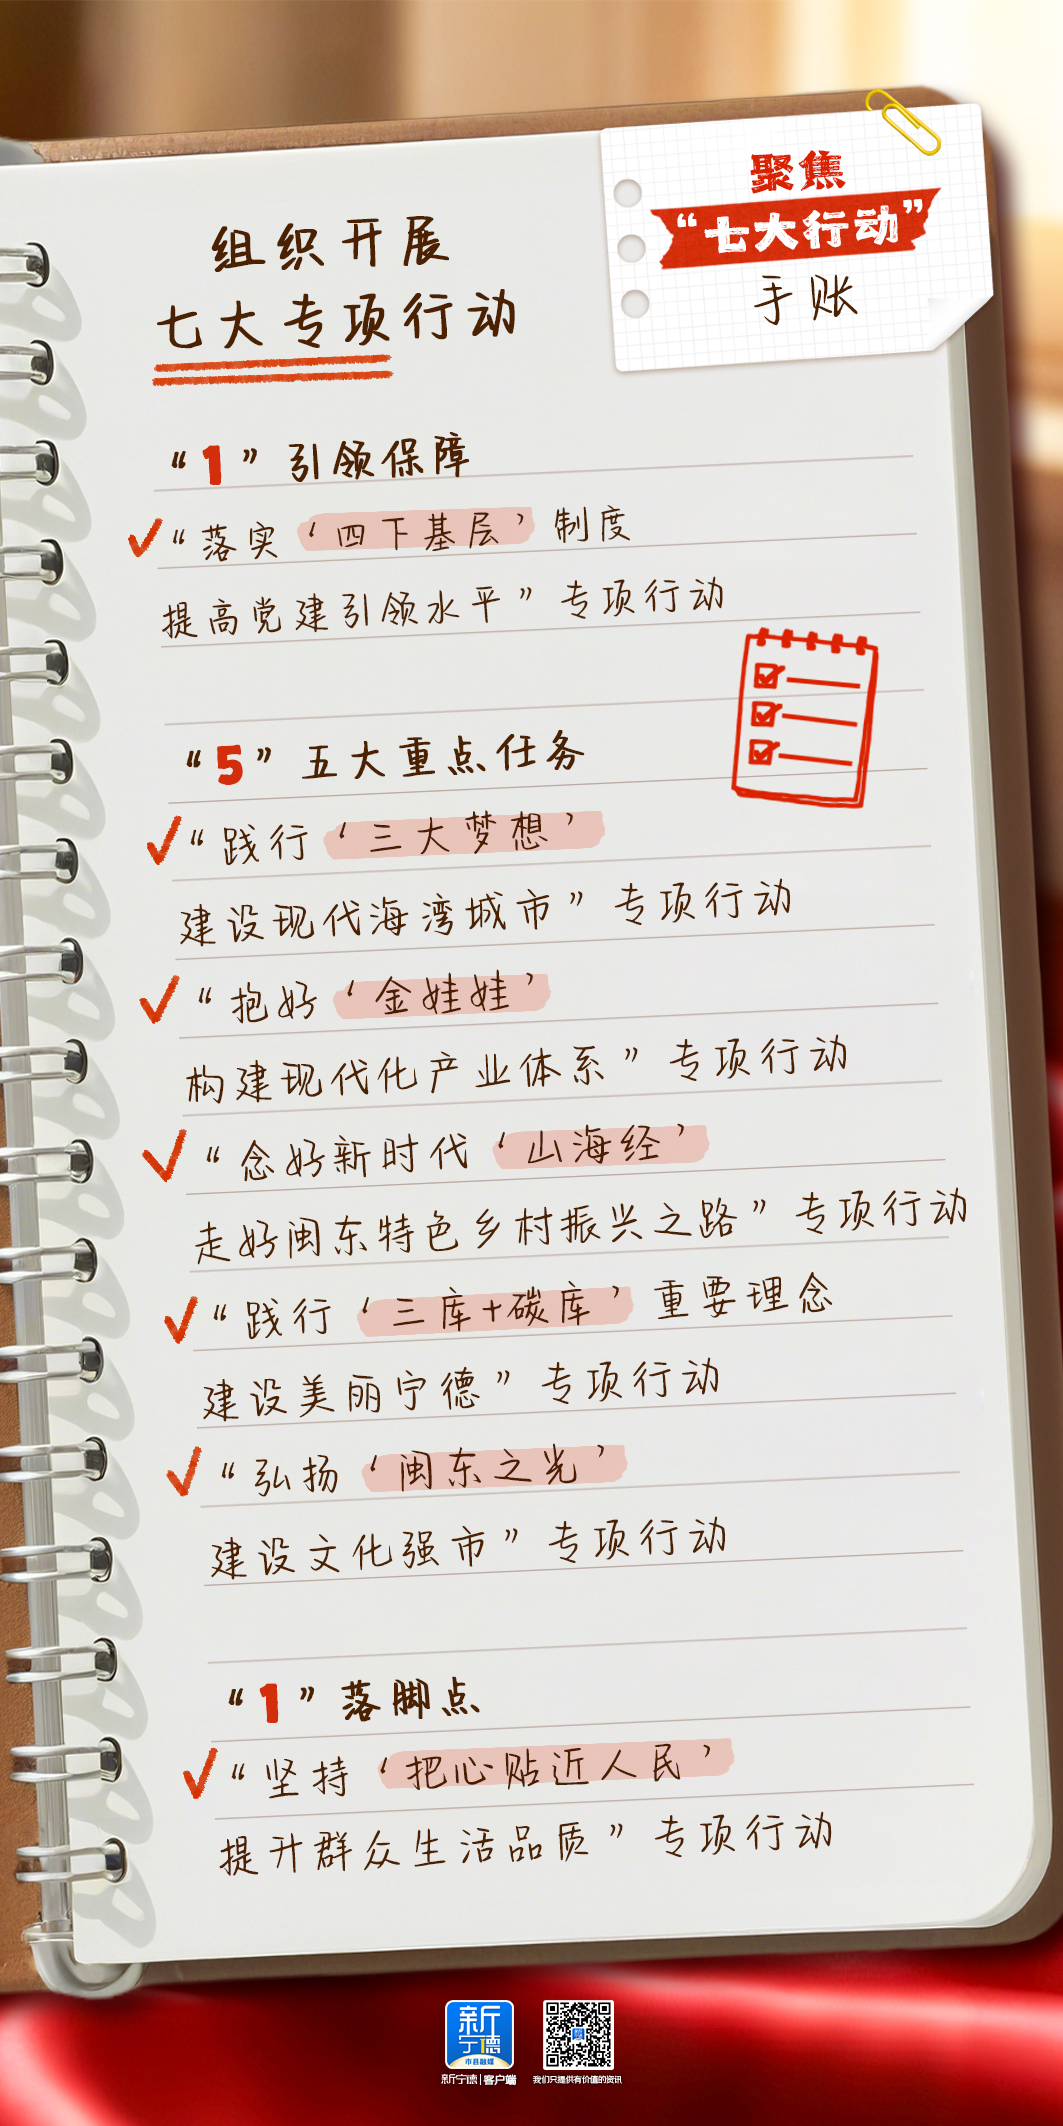 聚焦
“七大行动”
手账
组织开展
七大专项行动
“1”引领保障
“落实‘四下基层’制度
提高党建引领水平”专项行动
“5”五大重点任务
“践行‘三大梦想’
建设现代海湾城市”专项行动
“抱好‘金娃娃’
构建现代化产业体系”专项行动
“念好新时代‘山海经’
走好闽东特色乡村振兴之路”专项行动
“践行‘三库+碳库’重要理念
建设美丽宁德”专项行动
“弘扬‘闽东之光’
建设文化强市”专项行动
“1”落脚点
“坚持‘把心贴近人民’
提升群众生活品质”专项行动
新
宁德
市县融媒
新宁德|客户端
我们只提供有价值的资讯